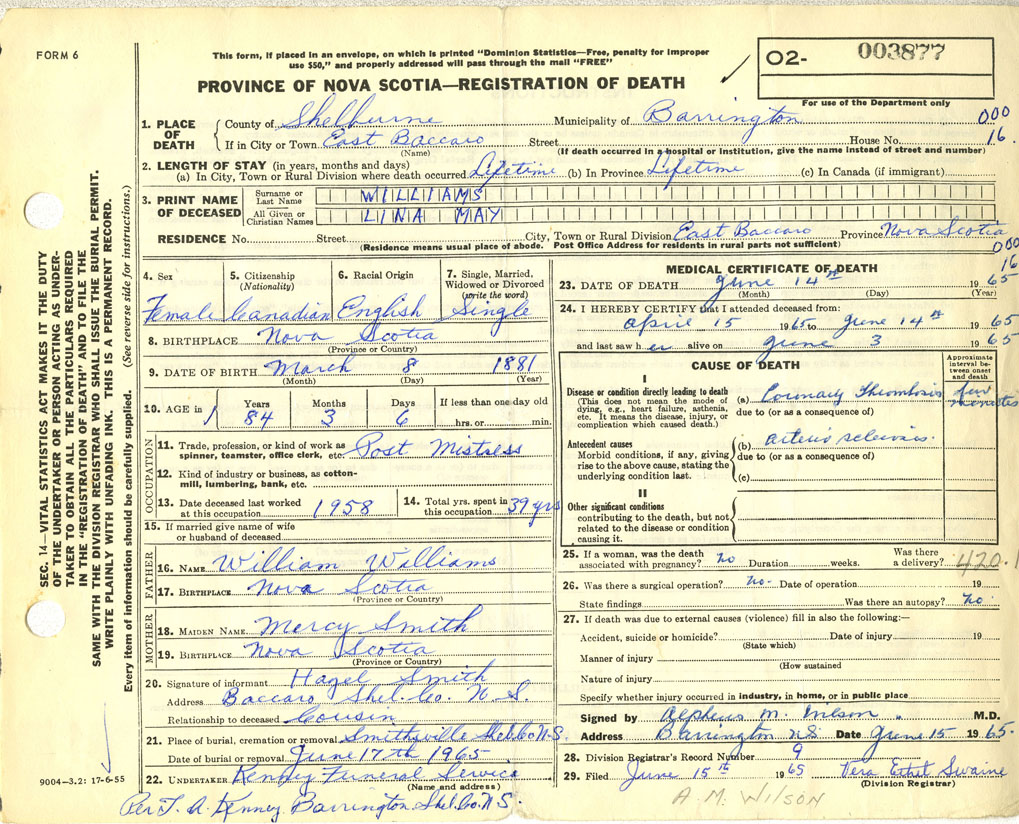 FORM 6
This form, if placed in an envelope, on which is printed "Dominion Statistics—Free, penalty for improper
use $50," and properly addressed will pass through the mail "FREE"
PROVINCE OF NOVA SCOTIA—REGISTRATION OF DEATH
02- 003877
For use of the Department only
1. PLACE OF DEATH { County of Shelburne Municipality of Barrington 000
If in City or Town East Baccaro Street House No. 16
(Name) (If death occurred in a hospital or institution, give the name instead of street and number)
2. LENGTH OF STAY (in years, months and days)
(a) In City, Town or Rural Division where death occurred Lifetime (b) In Province Lifetime (c) In Canada (if immigrant)
3. PRINT NAME OF DECEASED
Surname or Last Name WILLIAMS
All Given or Christian Names LINA MAY
RESIDENCE No. Street City, Town or Rural Division East Baccaro Province Nova Scotia
(Residence means usual place of abode. Post Office Address for residents in rural parts not sufficient)
000
16
4. Sex Female
5. Citizenship (Nationality) Canadian
6. Racial Origin English
7. Single, Married, Widowed or Divorced (write the word) Single
8. BIRTHPLACE Nova Scotia
(Province or Country)
9. DATE OF BIRTH March 8 1881
(Month) (Day) (Year)
10. AGE in Years 84 Months 3 Days 6 If less than one day old hrs. or min.
OCCUPATION
11. Trade, profession, or kind of work as
spinner, teamster, office clerk, etc. Post Mistress
12. Kind of industry or business, as cotton-
mill, lumbering, bank, etc.
13. Date deceased last worked at this occupation 1958
14. Total yrs. spent in this occupation 39 yrs
15. If married give name of wife
or husband of deceased
FATHER
16. NAME William Williams
17. BIRTHPLACE Nova Scotia
(Province or Country)
MOTHER
18. MAIDEN NAME Mercy Smith
19. BIRTHPLACE Nova Scotia
(Province or Country)
20. Signature of informant Hazel Smith
Address Baccaro Shel. Co. N.S.
Relationship to deceased Cousin
21. Place of burial, cremation or removal Smithsville Shel Co N.S.
Date of burial or removal June 17th 1965
22. UNDERTAKER Kenney Funeral Service
(Name and address)
Per T. A. Kenney Barrington Shel. Co. N.S.
MEDICAL CERTIFICATE OF DEATH
23. DATE OF DEATH June 14th 1965
(Month) (Day) (Year)
24. I HEREBY CERTIFY that I attended deceased from:
April 15 1965 to June 14th 1965
and last saw her alive on June 3 1965
CAUSE OF DEATH
Approximate interval between onset and death
I
Disease or condition directly leading to death
(This does not mean the mode of
dying, e.g., heart failure, asthenia,
etc. It means the disease, injury, or
complication which caused death.)
(a) Coronary Thrombosis few minutes
due to (or as a consequence of)
Antecedent causes
Morbid conditions, if any, giving
rise to the above cause, stating the
underlying condition last.
(b) arterio sclerosis
due to (or as a consequence of)
(c)
II
Other significant conditions
contributing to the death, but not
related to the disease or condition
causing it.
25. If a woman, was the death associated with pregnancy? no Duration weeks. Was there a delivery? 420.1
26. Was there a surgical operation? no. Date of operation 19
State findings Was there an autopsy? no.
27. If death was due to external causes (violence) fill in also the following:—
Accident, suicide or homicide? Date of injury 19
(State which)
Manner of injury
(How sustained
Nature of injury
Specify whether injury occurred in industry, in home, or in public place
Signed by Alpheus M. Wilson M.D.
Address Barrington NS Date June 15 1965.
28. Division Registrar's Record Number 9
29. Filed June 15th 1965 Vera Ethel Swaine
(Division Registrar)
A. M. WILSON
SEC. 14—VITAL STATISTICS ACT MAKES IT THE DUTY
OF THE UNDERTAKER OR PERSON ACTING AS UNDER-
TAKER TO OBTAIN ALL THE PARTICULARS REQUIRED
IN THE "REGISTRATION OF DEATH" AND TO FILE THE
SAME WITH THE DIVISION REGISTRAR WHO SHALL ISSUE THE BURIAL PERMIT.
WRITE PLAINLY WITH UNFADING INK. THIS IS A PERMANENT RECORD.
Every item of information should be carefully supplied. (See reverse side for instructions.)
9004-3.2: 17-6-55